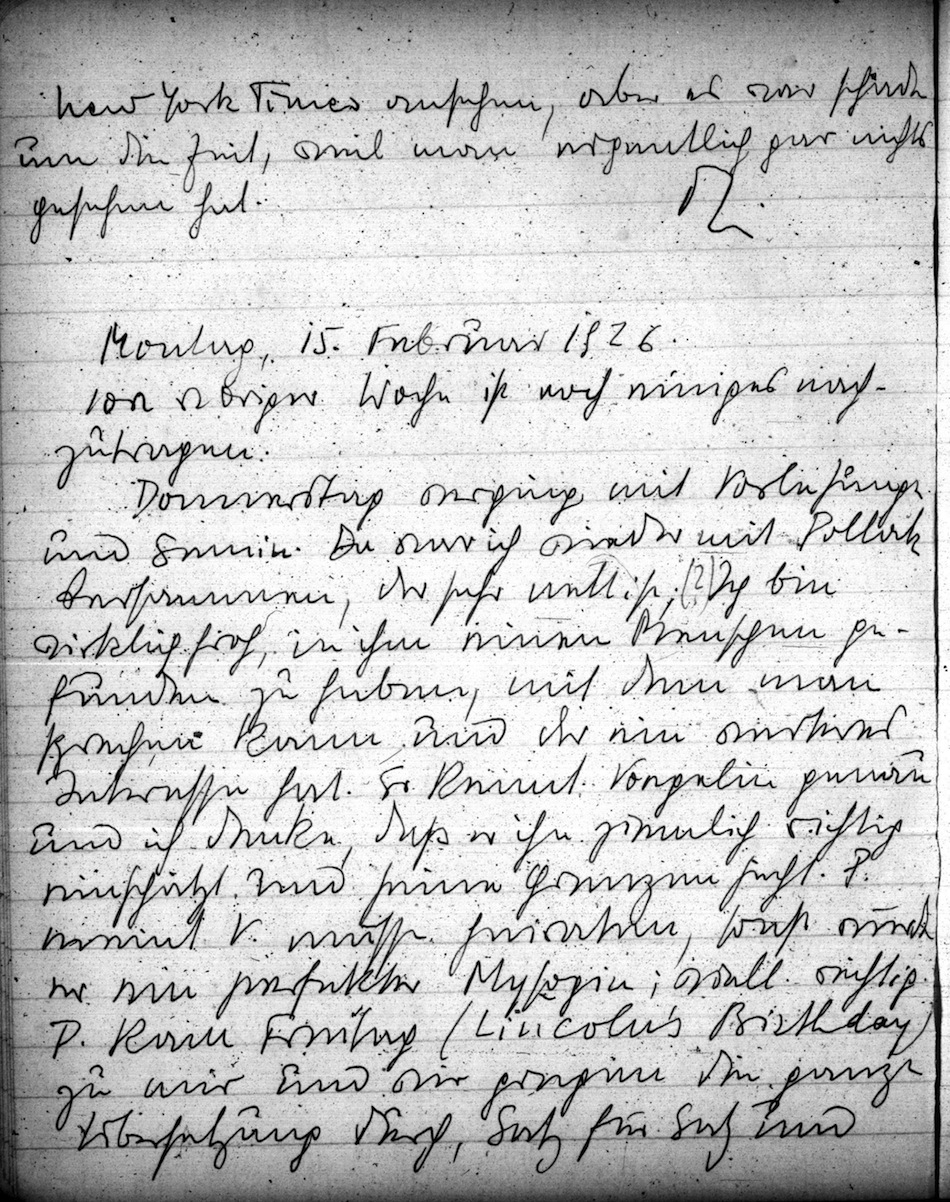 New York Times ansehen, aber es war schade
um die Zeit, weil man eigentlich gar nichts
gesehen hat.
Montag, 15. Februar 1926.
Von voriger Woche ist noch einiges nach-
zutragen.
Donnerstag verging mit Vorlesungen
und Semin. Da war ich wieder mit Pollock
beisammen, der sehr nett ist. (?) Ich bin
wirklich froh, in ihm einen Menschen ge-
funden zu haben, mit dem man
sprechen kann und der ein weiteres
Interesse hat. Er kennt Voegelin genau
und ich denke, daß er ihn ziemlich richtig
einschätzt und seine Grenzen sieht. P.
meint V. müsse heiraten, sonst würde
er ein perfekter Mysogin; viell. richtig.
P. kam Freitag (Lincoln's Birthday)
zu mir und wir gingen die ganze
Übersetzung durch, Satz für Satz und